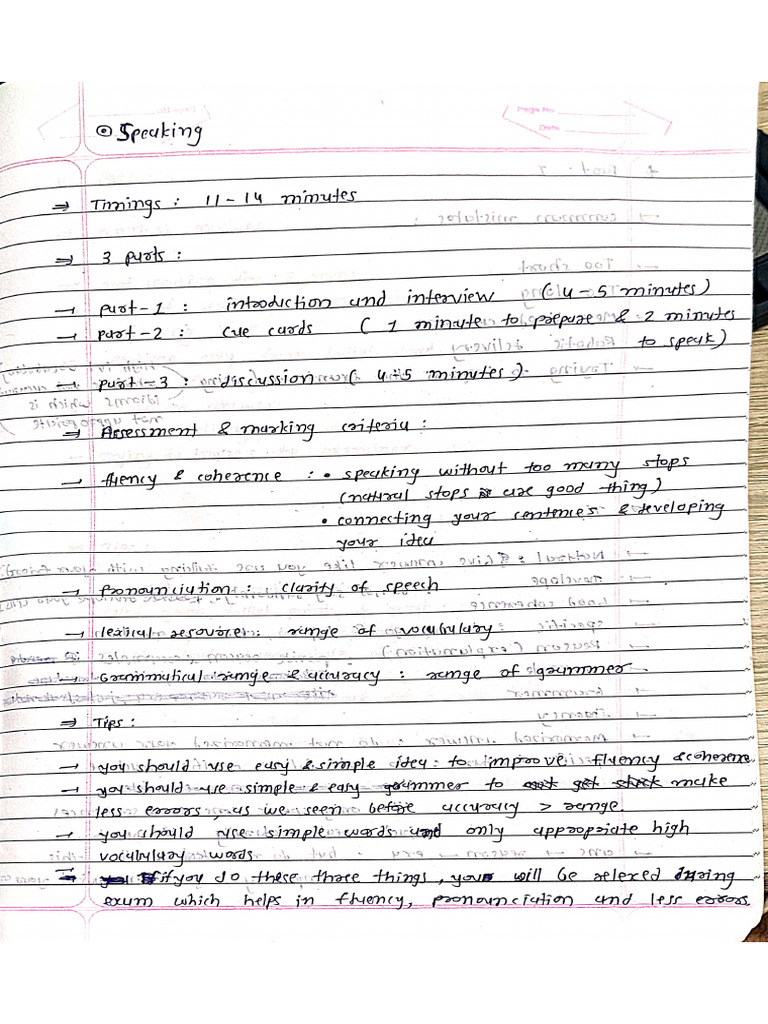 ⊙ Speaking
Page No.
Date
⇒ Timings : 11 - 14 minutes
⇒ 3 parts :
→ part-1 : introduction and interview (4-5 minutes)
→ part-2 : cue cards ( 1 minute to prepare & 2 minutes
to speak)
→ part-3 : discussion ( 4-5 minutes)
⇒ Assessment & marking criteria :
→ fluency & coherence : • speaking without too many stops
(natural stops are good thing)
• connecting your sentences & developing
your idea
→ pronounciation : clarity of speech
→ lexical resource : range of vocabulary
→ Grammatical range & accuracy : range of grammer
⇒ Tips :
→ you should use easy & simple idea to improve fluency & coherence
→ you should use simple & easy grammer to make
less errors, as we seen before accuracy > range
→ you should use simple words and only appropriate high
vocabulary words
→ if you do these three things, you will be relexed during
exam which helps in fluency, pronounciation and less errors